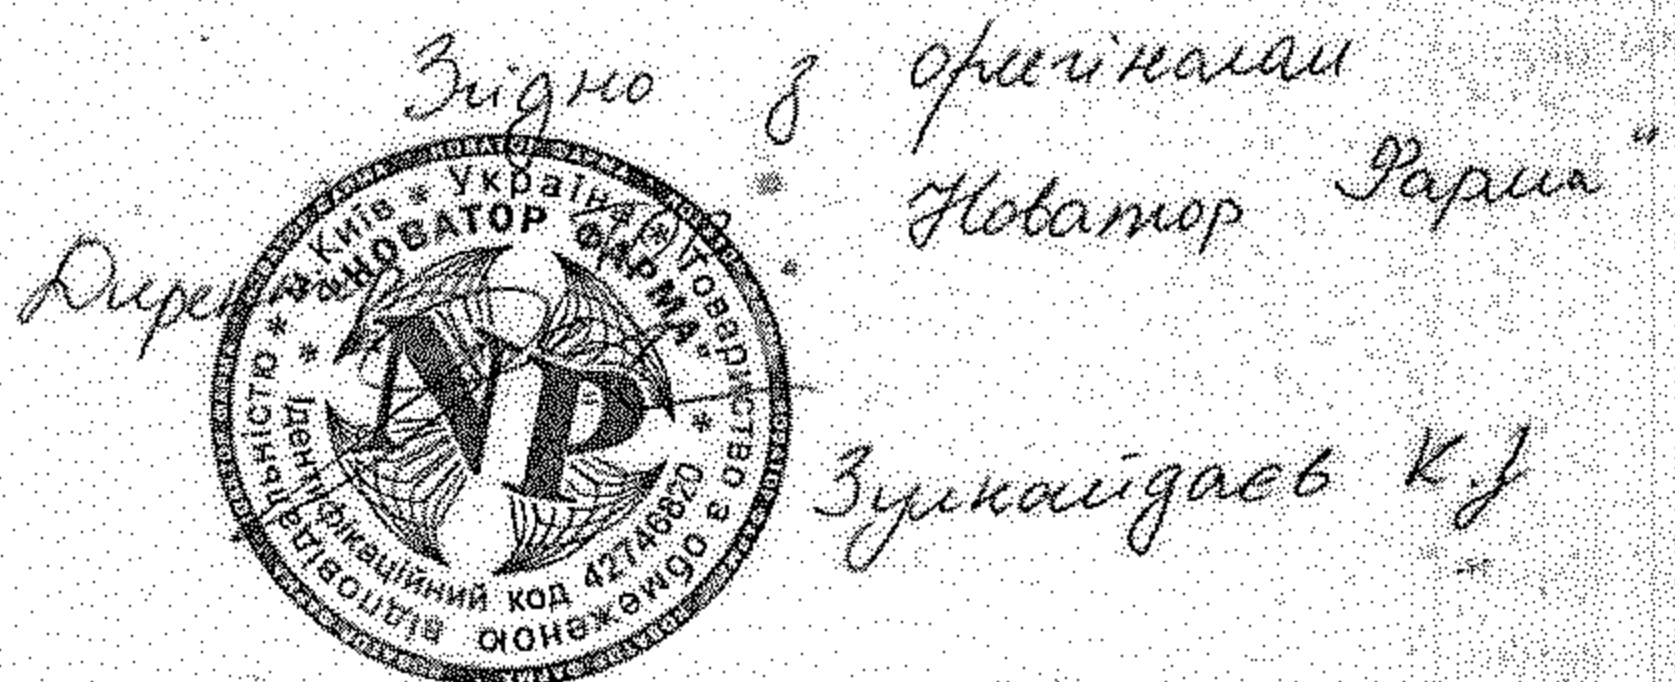 Згідно з оригіналом
Директор
Новатор Фарма"
м. Київ * Україна * Товариство з обмеженою відповідальністю *
"НОВАТОР ФАРМА"
* Ідентифікаційний код 42746820 *
NP
Зулкайдаєв К.